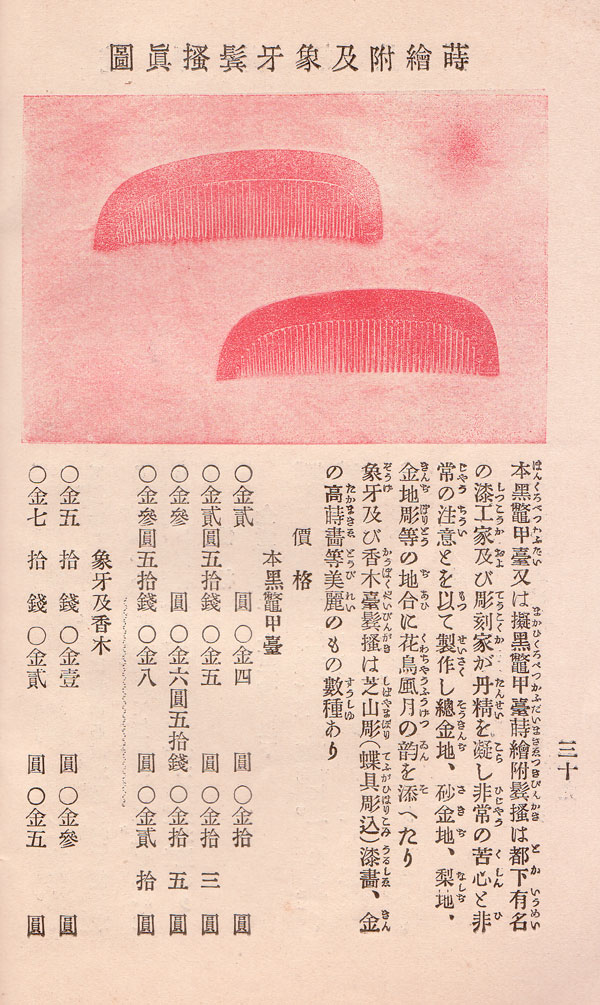 蒔繪附及象牙鬂搔眞圖
三十
本黑鼈甲臺又は擬黑鼈甲臺蒔繪附鬂搔は都下有名
の漆工家及び彫刻家が丹精を凝し非常の苦心と非
常の注意とを以て製作し總金地、砂金地、梨地、
金地彫等の地合に花鳥風月の韵を添へたり
象牙及び香木臺鬂搔は芝山彫(蝶具彫込)漆畫、金
の高蒔畫等美麗のもの數種あり
價格
本黑鼈甲臺
○金貳圓 ○金四圓 ○金拾圓
○金貳圓五拾錢 ○金五圓 ○金拾三圓
○金參圓 ○金六圓五拾錢 ○金拾五圓
○金參圓五拾錢 ○金八圓 ○金貳拾圓
象牙及香木
○金五拾錢 ○金壹圓 ○金參圓
○金七拾錢 ○金貳圓 ○金五圓